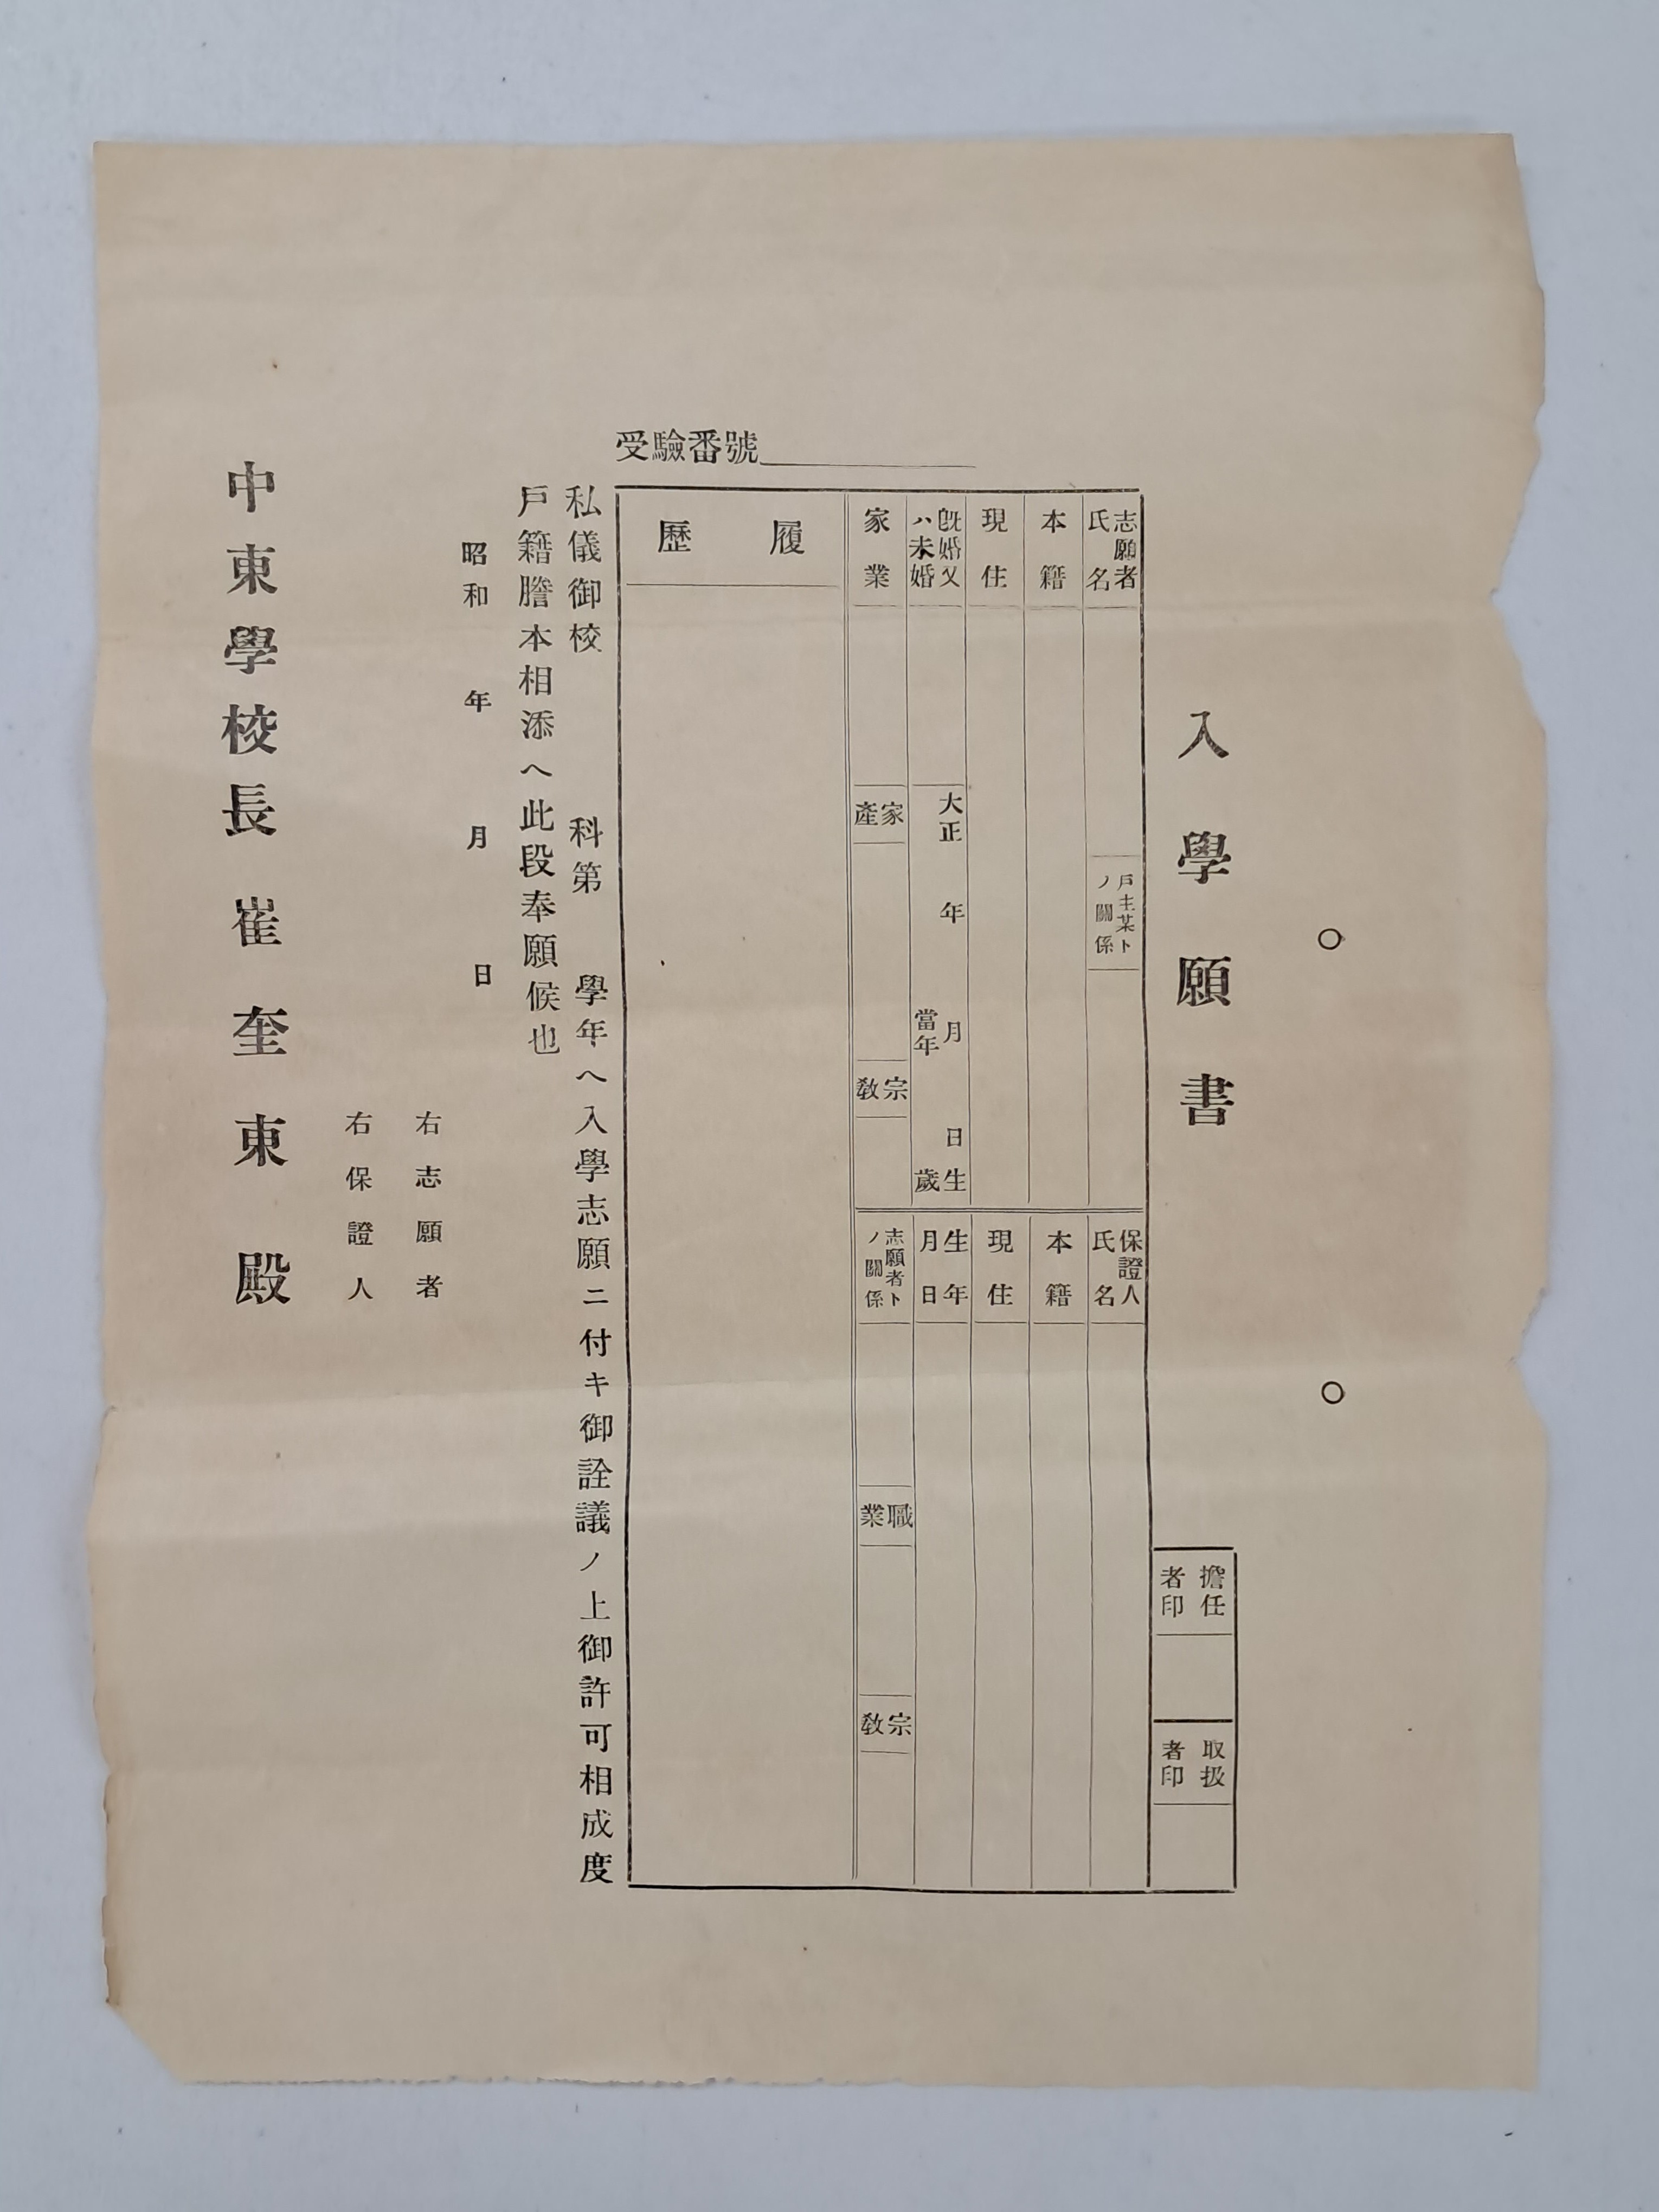 入學願書
擔任
者印
取扱
者印
受驗番號
志願者
氏名
戶主某ト
ノ關係
保證人
氏名
本籍
本籍
現住
現住
旣婚又
ハ未婚
大正 年 月 日生
當年 歲
生年
月日
家業
家產
宗敎
志願者ト
ノ關係
職業
宗敎
履歷
私儀御校 科第 學年ヘ入學志願ニ付キ御詮議ノ上御許可相成度
戶籍謄本相添ヘ此段奉願候也
昭和 年 月 日
右志願者
右保證人
中東學校長崔奎東殿